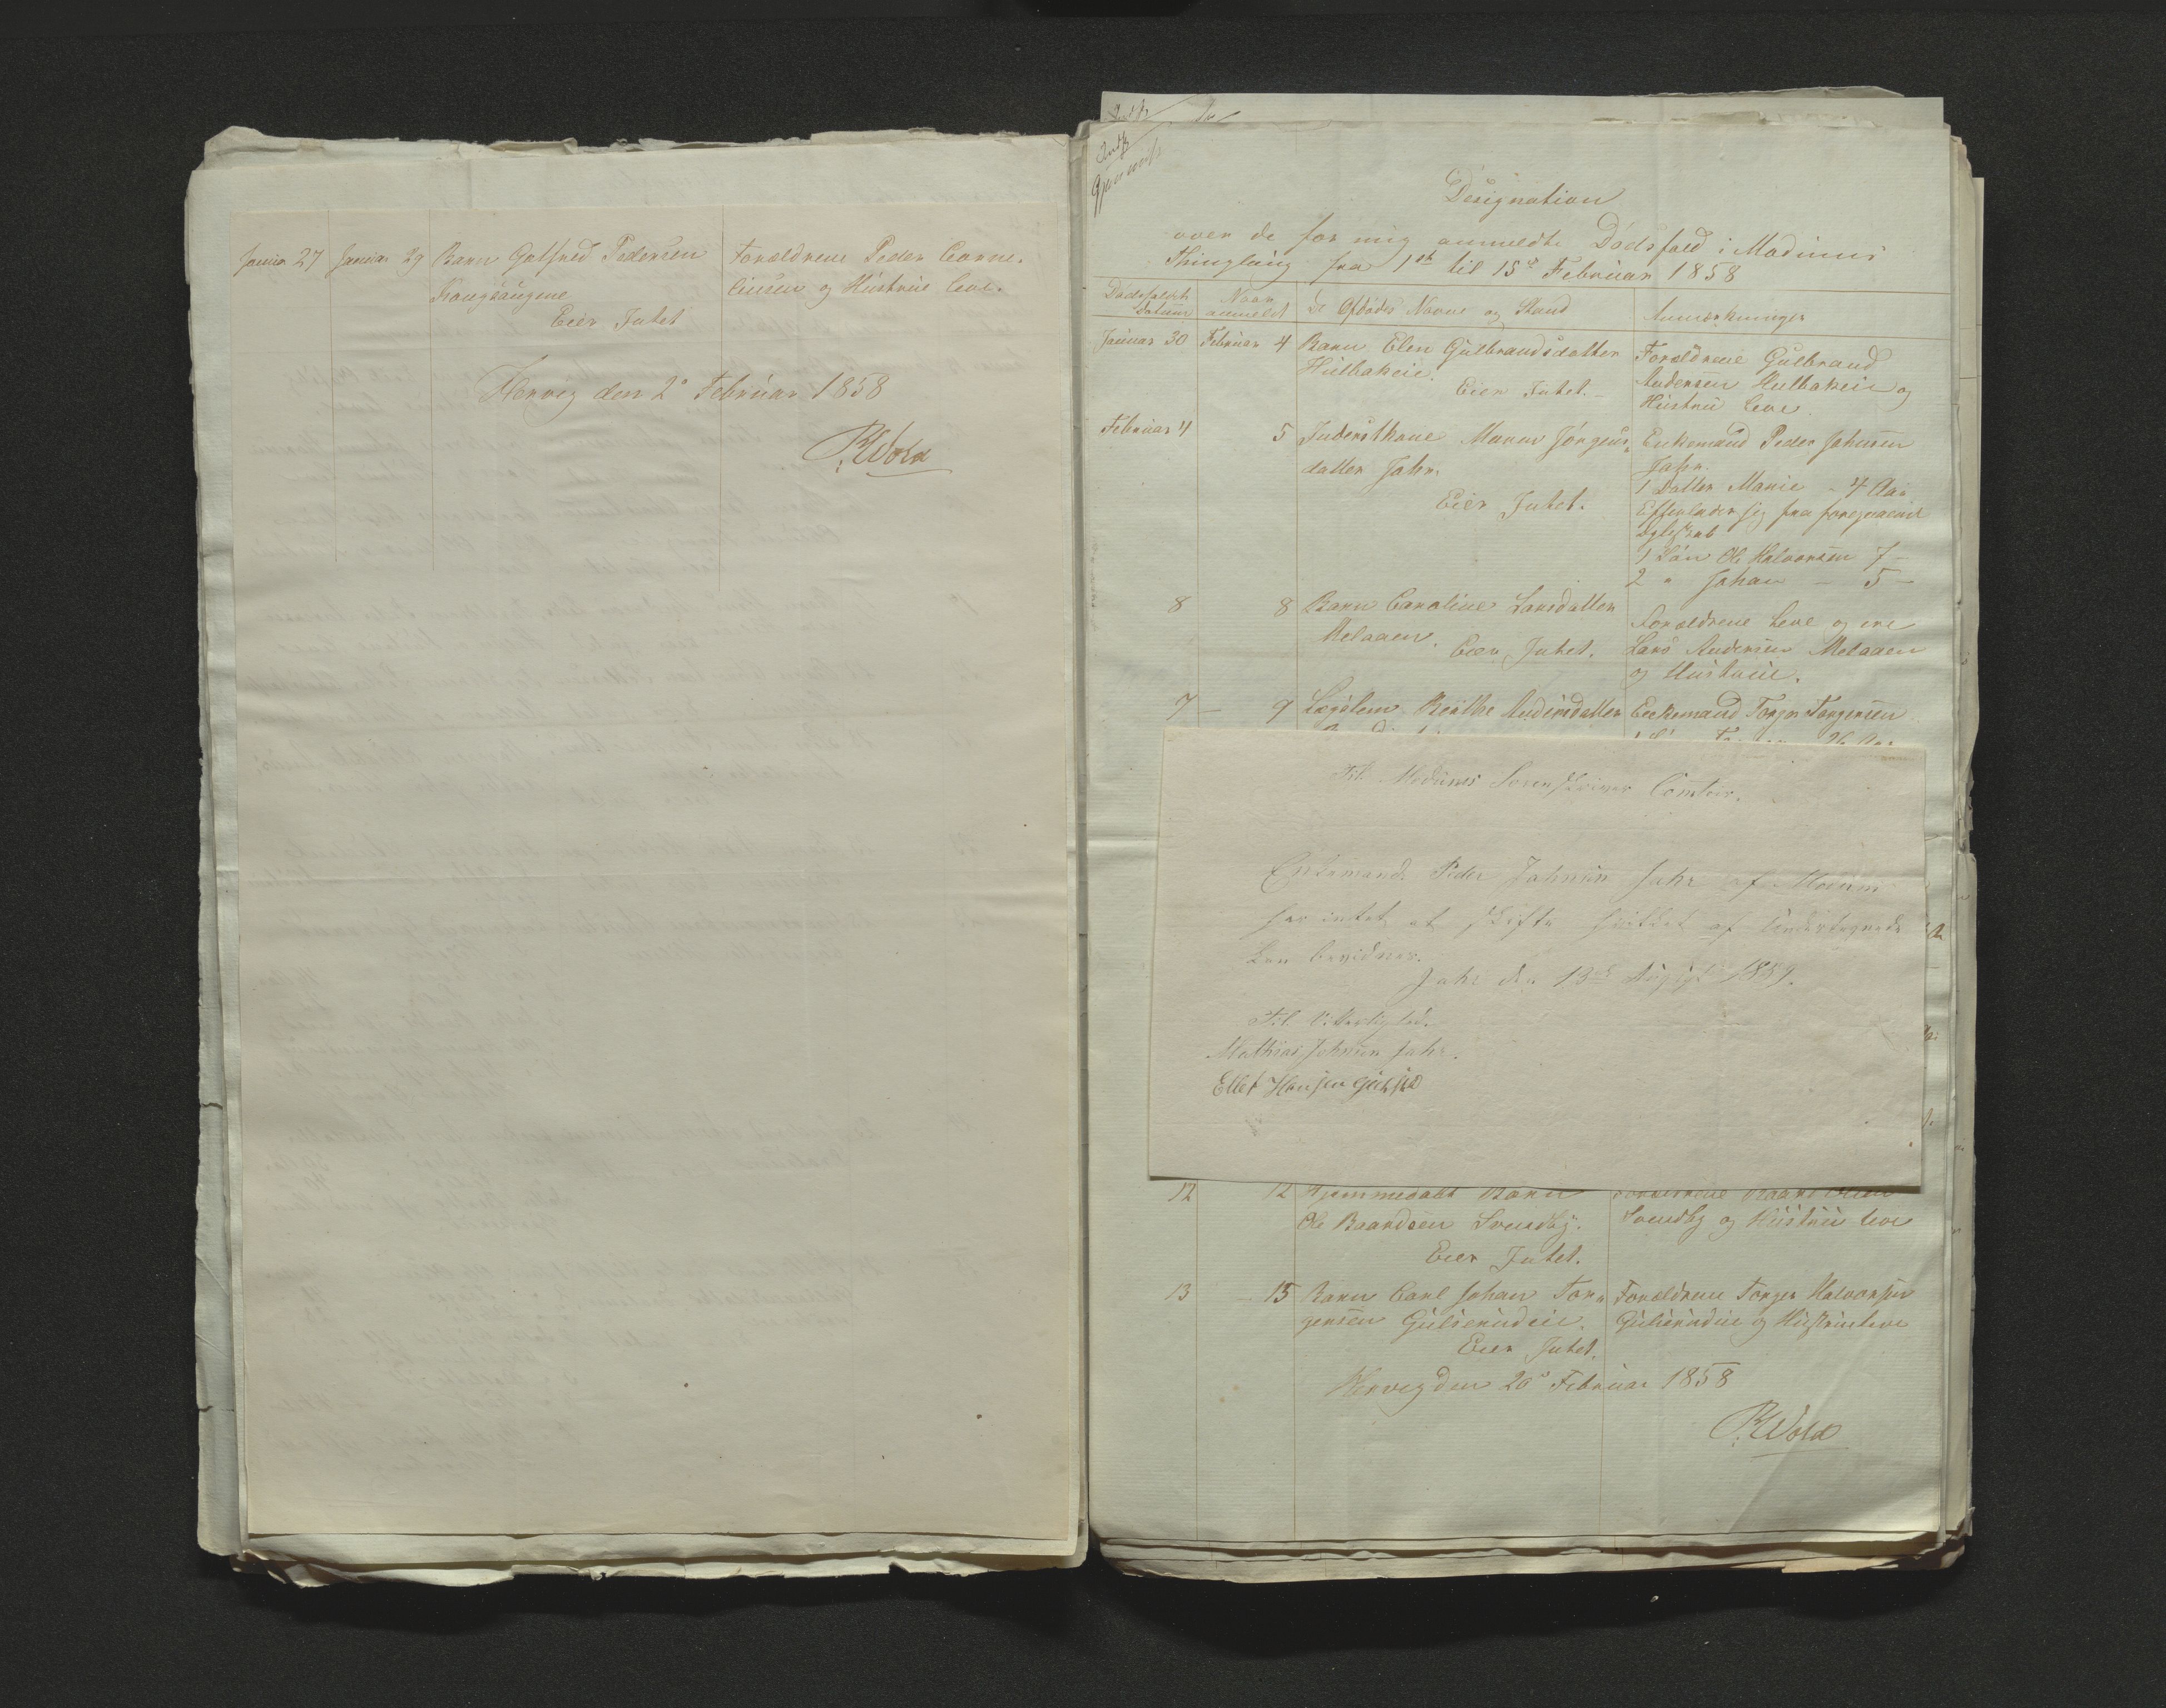 Januar 27 Januar 29 Barn Gotfred Pedersen Forældrene Peder Corne-
Kongsaugene liusen og Hustrue leve.
Eier Intet
Hervig den 2d Februar 1858
RWold
Designation
over de for mig anmeldte Dødsfald i Modums
Thinglaug fra 1ste til 15de Februar 1858
Dødsfaldets Datum
Naar anmeldt
De Afdødes Navne og Stand
Anmærkninger
Januar 30 Februar 4 Barn Elen Gulbrandsdatter
Hulbakeie.
Eier Intet.
Forældrene Gulbrand
Andersen Hulbakeie og
Hustrue leve.
Februar 4 5 Inderstkone Maren Jørgens-
datter Jahr.
Eier Intet.
Enkemand Peder Johnsen
Jahr.
1 Datter Marie - 4 Aar
Efterlader sig fra foregaaende
Ægteskab
1 Søn Ole Halvorsen 7 -
2 " Johan - 5 -
8 8 Barn Caroline Larsdatter
Melaaen.
Eier Intet.
Forældrene leve og ere
Lars Andersen Melaaen
og Hustrue.
7 - 9 Lægslem Berthe Andersdatter
Enkemand Torger Torgersen
Til Modums Sorenskriver Comtoir.
Enkemand Peder Johnsen Jahr af Modum
har intet at skifte hvilket af Undertegnede
kan bevidnes.
Jahr den 13de August 1859.
Til Vitterlighed.
Mathias Johnsen Jahr.
Ellef Hansen
12 12 Hjemmedøbt Barn
Ole Baardsen Svendby.
Eier Intet.
Forældrene Baard Olsen
Svendby og Hustrue leve
13 - 15 Barn Carl Johan Tor-
gersen Gulserudeie.
Eier Intet.
Forældrene Torger Halvorsen
Gulserudeie og Hustrue leve
Hervig den 20d Februar 1858
RWold